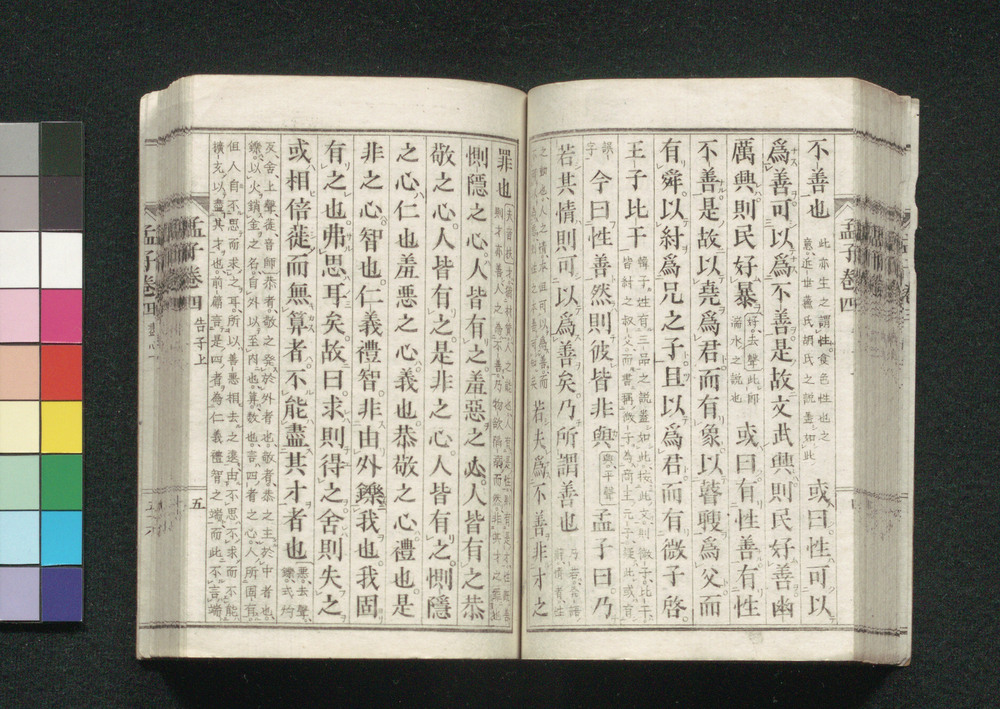 不善也 此亦生之謂性食色性也之意近世蘇氏胡氏之說蓋如此 或曰性可以
爲善可以爲不善是故文武興則民好善幽
厲興則民好暴 好去聲此即湍水之說也 或曰有性善有性
不善是故以堯爲君而有象以瞽瞍爲父而
有舜以紂爲兄之子且以爲君而有微子啓
王子比干 韓子性有三品之說蓋如此按此文則微子比干皆紂之叔父而書稱微子爲商王元子疑此或有
誤字 今曰性善然則彼皆非與 與平聲 孟子曰乃
若其情則可以爲善矣乃所謂善也 乃若發語辭情者性
之動也人之情本但可以爲善而 若夫爲不善非才之
罪也 夫音扶才猶材質人之能也人有是性則有是才性既善則才亦善人之爲不善乃物欲陷溺而然非其才之罪也
惻隱之心人皆有之羞惡之心人皆有之恭
敬之心人皆有之是非之心人皆有之惻隱
之心仁也羞惡之心義也恭敬之心禮也是
非之心智也仁義禮智非由外鑠我也我固
有之也弗思耳矣故曰求則得之舍則失之
或相倍蓰而無算者不能盡其才者也 惡去聲鑠式灼
反舍上聲蓰音師恭者敬之發於外者也敬者恭之主於中者也
鑠以火銷金之名自外以至內也算數也言四者之心人所固有
但人自不思而求之耳所以善惡相去之遠由不思不求而不能
擴充以盡其才也前篇言是四者爲仁義禮智之端而此不言端
孟子卷四 告子上 五